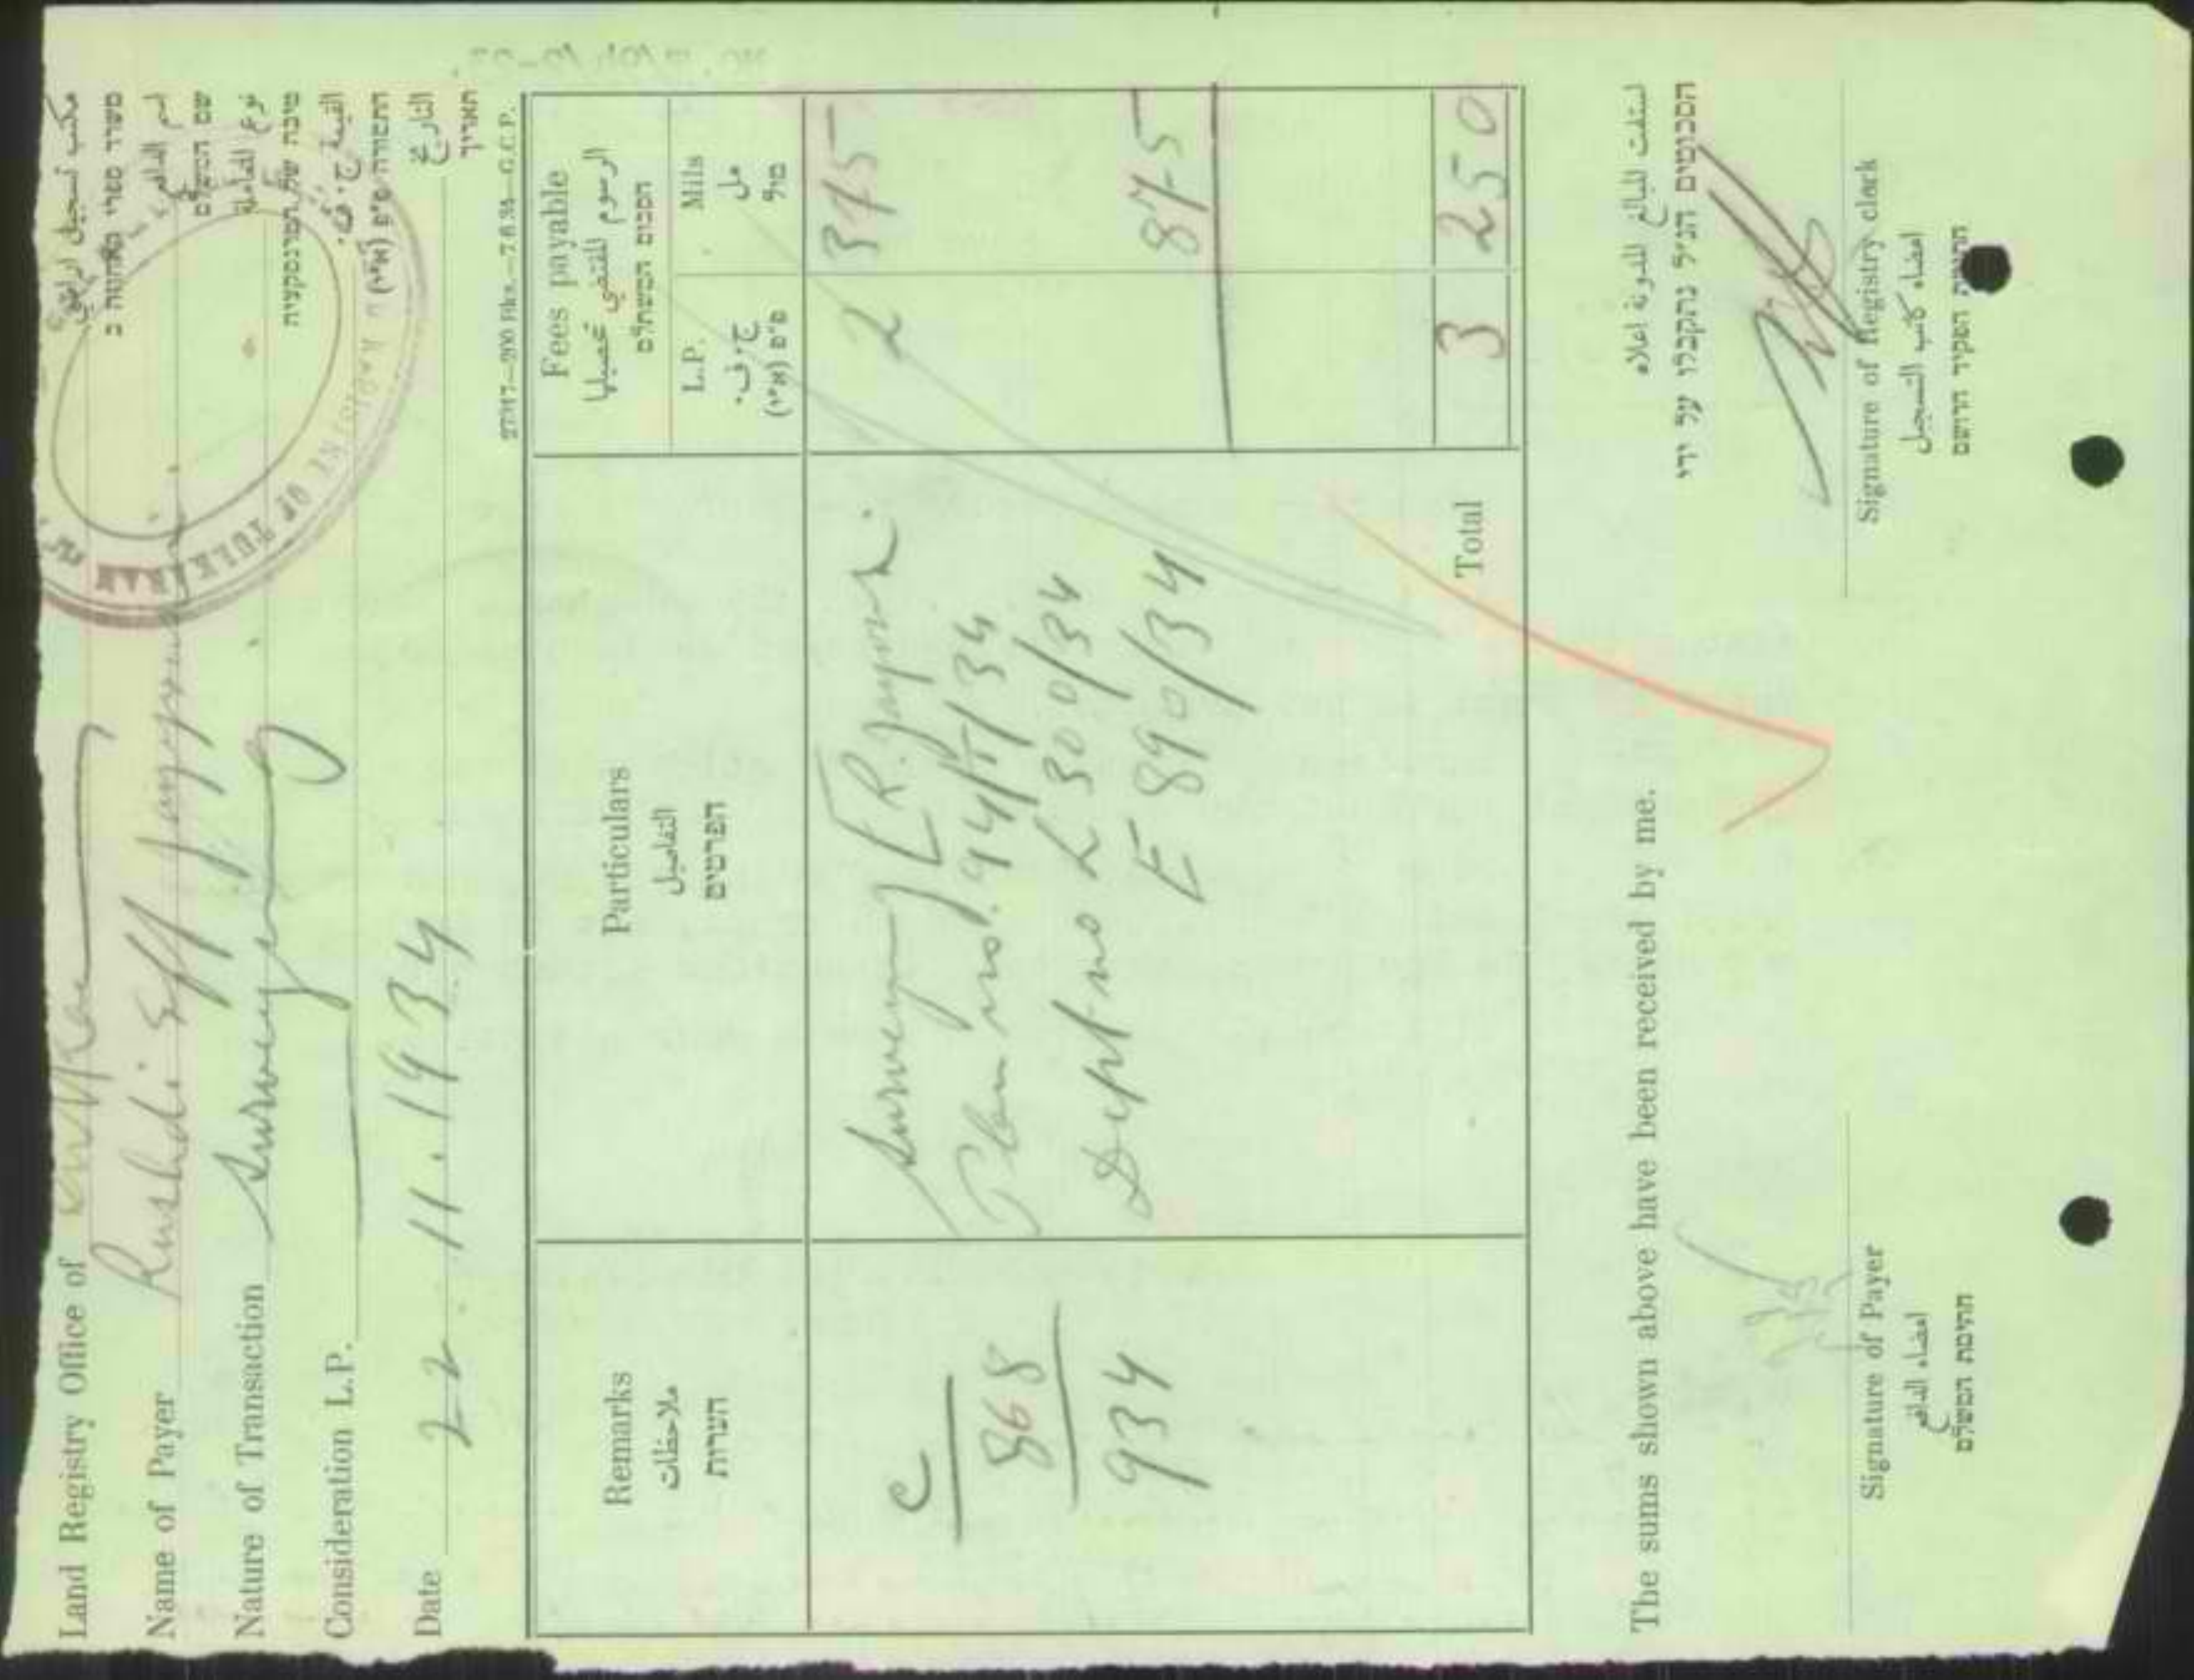 Land Registry Office of
مكتب تسجيل اراضي
משרד ספרי האחוזה ב
Name of Payer Rushdi Eff
اسم الدافع
שם המשלם
Nature of Transaction Surveying
نوع المعاملة
טיבה של הטרנסקציה
Consideration L.P.
القيمة ج.ف.
התמורה פ״פ (א״י)
OF TULKARAM
Date 22.11.1934
التاريخ
תאריך
27317—200 Bks.—7.6.34—G.C.P.
Remarks
ملاحظات
הערות
Particulars
التفاصيل
הפרטים
Fees payable
الرسوم المقتضي تحصيلها
הסכום המשתלם
L.P.
ج.ف.
פ״פ (א״י)
Mils
مل
מיל
C
868
934
Surveying 2 375
Plan no. 94/T/34
Dept no L 300/34
E 890/34 875
Total 3 250
The sums shown above have been received by me.
استلمت المبالغ المدونة اعلاه
הסכומים הנ״ל נתקבלו על ידי
Signature of Payer
امضاء الدافع
חתימת המשלם
Signature of Registry clerk
امضاء كاتب التسجيل
חתימת הפקיד הרושם